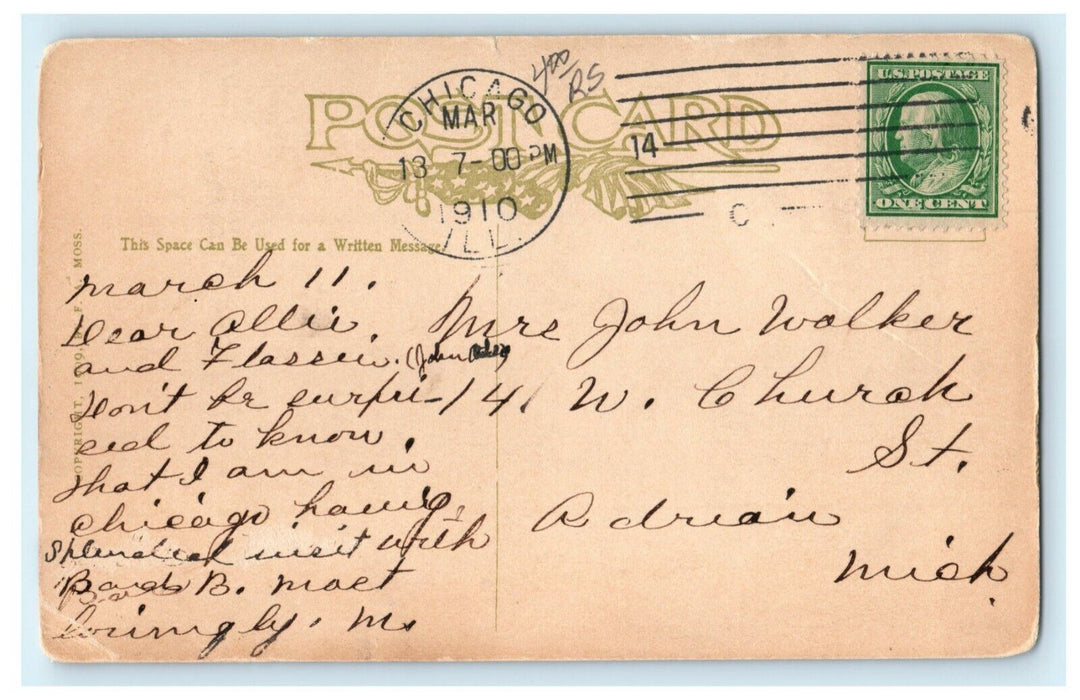 4.00/RS
POST CARD
CHICAGO
MAR
13 7-00 PM
1910
ILL.
14
C
U.S. POSTAGE
ONE CENT
This Space Can Be Used for a Written Message.
COPYRIGHT, 1909, F. MOSS.
March 11.
Dear Allie.
and Flassie. (John
Don't be surpri-
sed to know.
that I am in
Chicago having
splendid visit with
B. most
lovingly. M.
Mrs John Walker
141 W. Church
St.
Adrian
Mich.